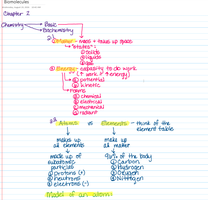 Biomolecules
Chapter 2
Chemistry → Basic
→ Biochemistry
① Matter - mass + takes up space
"States"
① solids
② liquids
③ gas
② Energy - capacity to do work
(↑ work = ↑ energy)
① potential
② kinetic
Forms
① chemical
② electrical
③ mechanical
④ radiant
Atoms vs Elements - think of the
element table
makes up
all elements
makes up
all matter
made up of
subatomic
particles
① protons (+)
② neutrons
③ electrons (-)
96% of the body
① Carbon
② Hydrogen
③ Oxygen
④ Nitrogen
Model of an atom